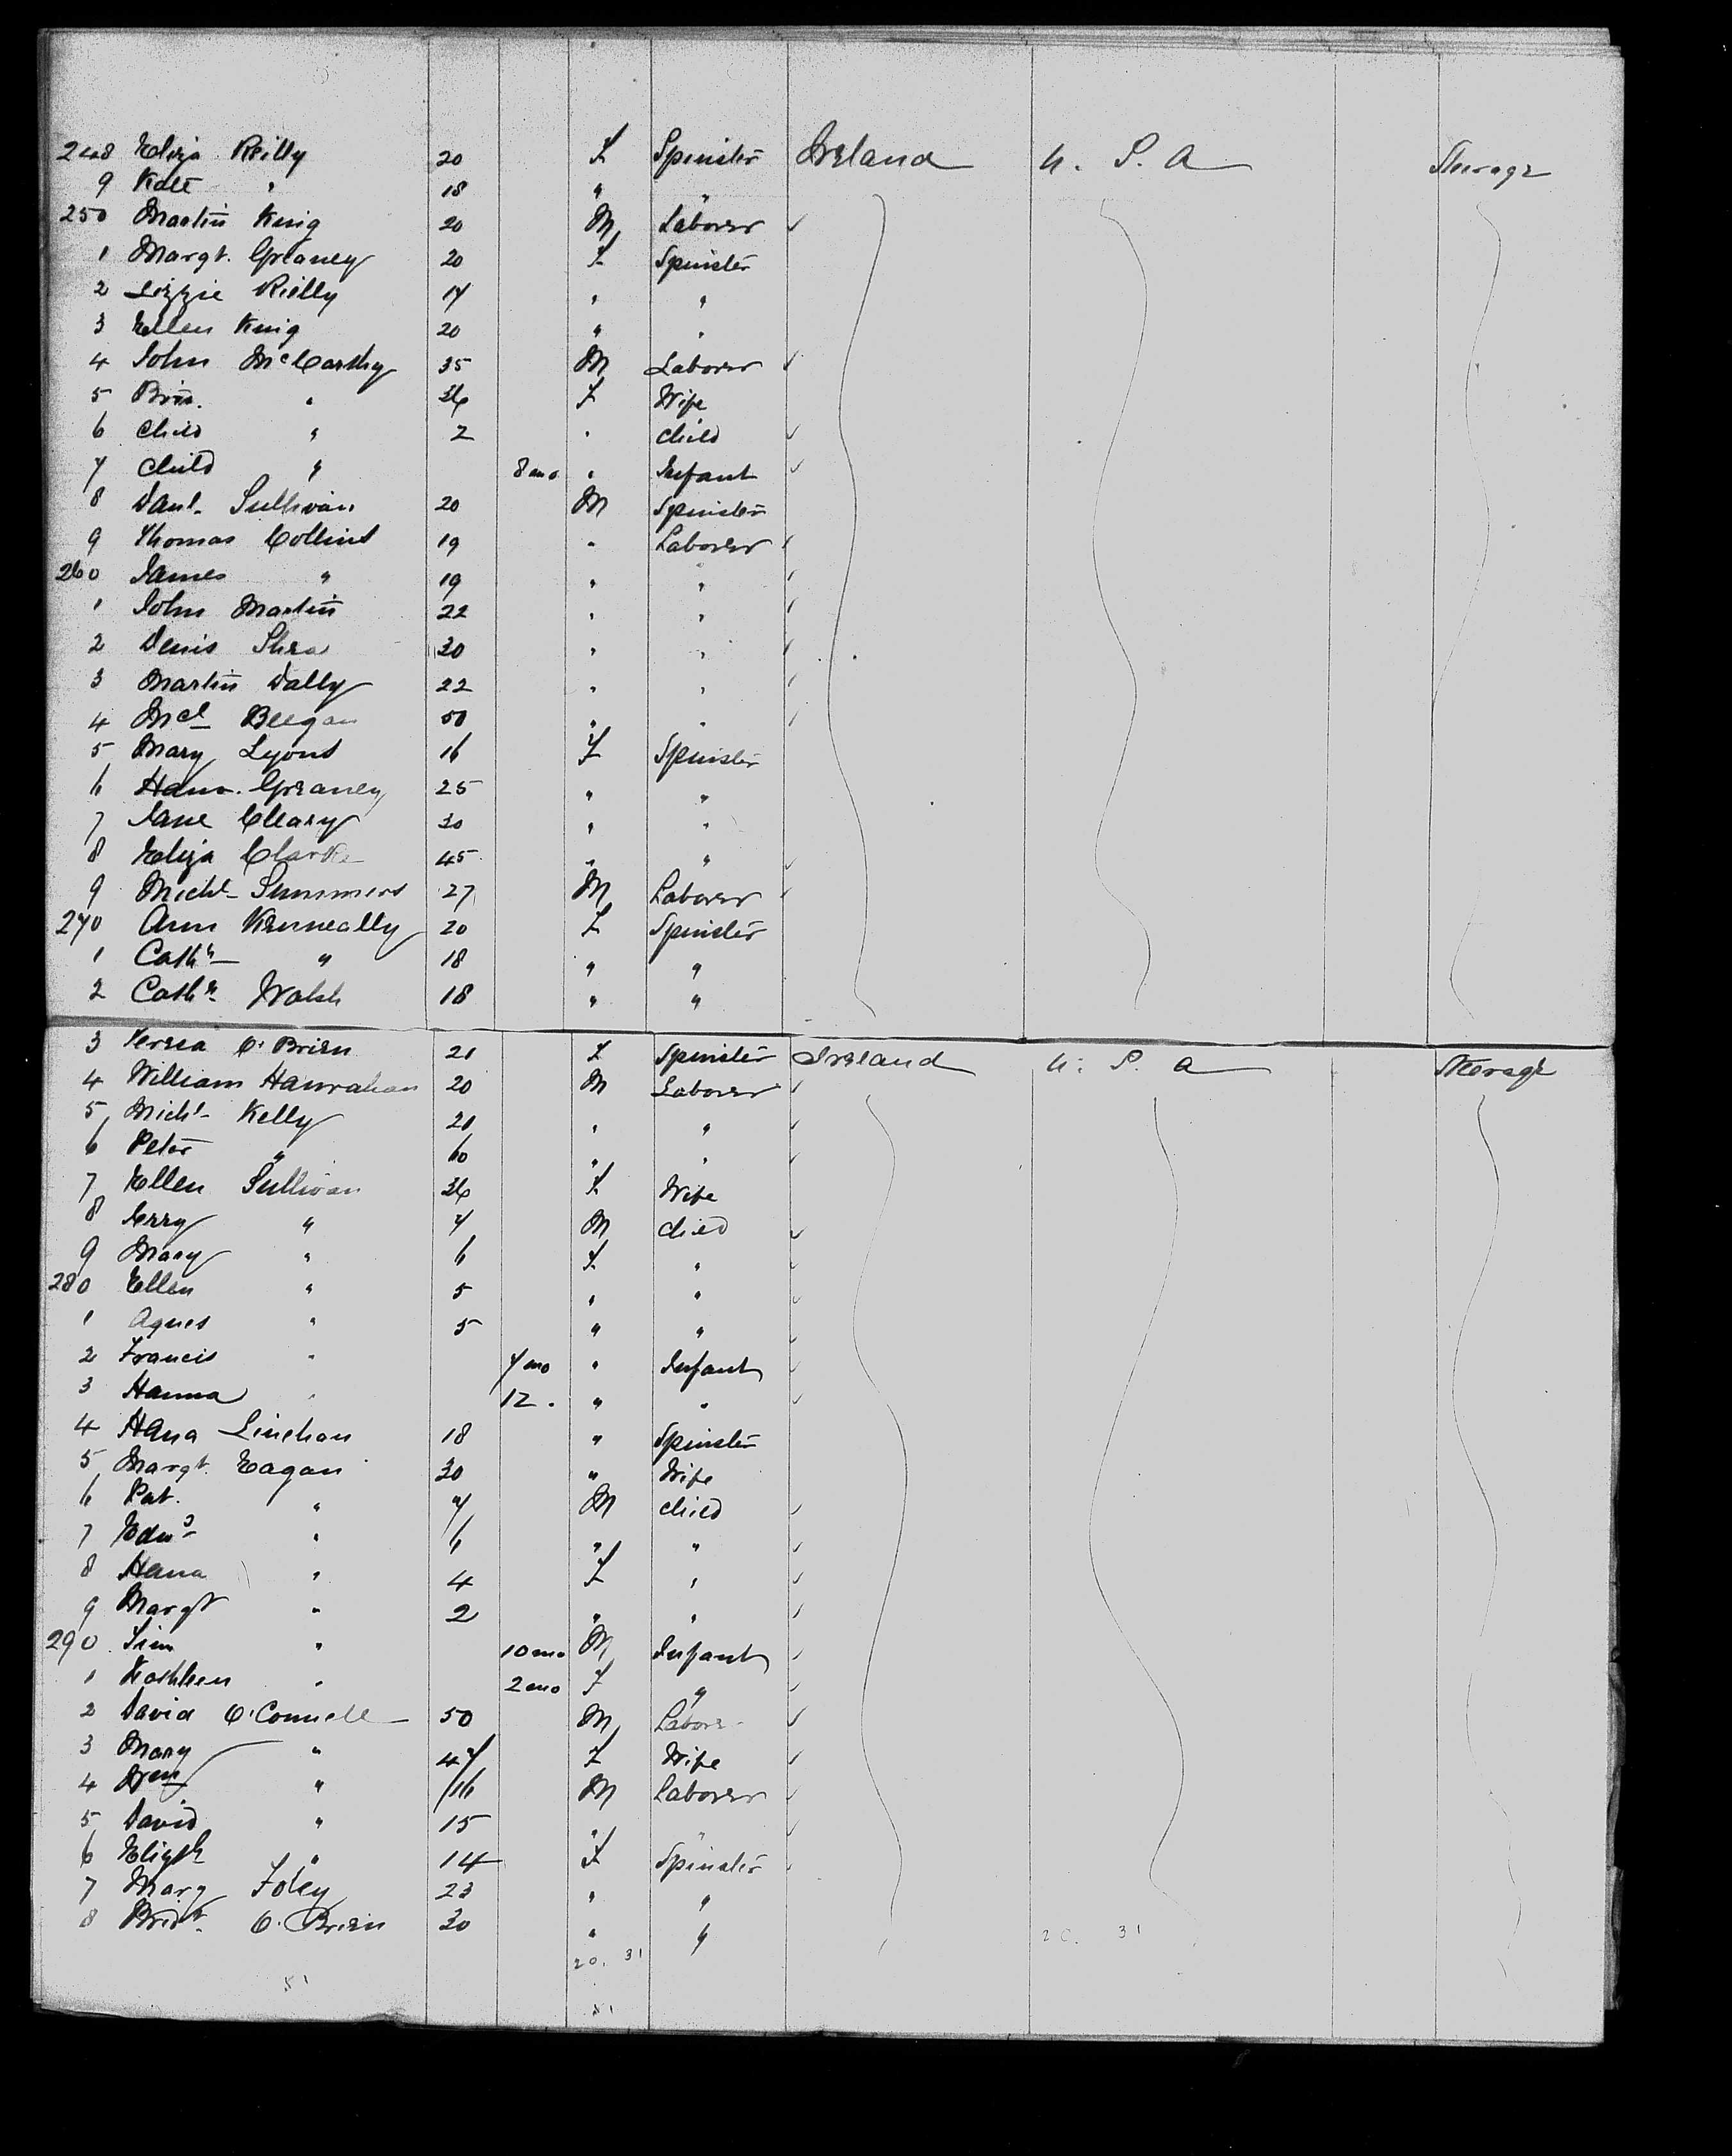 248 Eliza Reilly 20 F Spinster Ireland U. S. A Steerage
9 Kate " 18 " "
250 Martin King 20 M Laborer ✓
1 Margt. Greaney 20 F Spinster
2 Lizzie Rielly 17 " "
3 Ellen King 20 " "
4 John McCarthy 35 M Laborer ✓
5 " 36 F Wife
6 Child " 2 " Child ✓
7 Child " 8 mo " Infant ✓
8 Danl. Sullivan 20 M Spinster
9 Thomas Collins 19 " Laborer ✓
260 James " 19 " " ✓
1 John Martin 22 " " ✓
2 Denis Shea 30 " " ✓
3 Martin Dally 22 " " ✓
4 Mcl Beegan 50 " " ✓
5 Mary Lyons 16 F Spinster
6 Hana. Greaney 25 " "
7 Jane Cleary 30 " "
8 Eliza Clarke 45 " " ✓
9 Michl Summers 27 M Laborer ✓
270 Ann Kenneally 20 F Spinster
1 Cathn " 18 " "
2 Cathn Walsh 18 " "
3 O'Brien 21 F Spinster Ireland U. S. A Steerage
4 William Hanrahan 20 M Laborer ✓
5 Michl Kelly 21 " " ✓
6 Peter " 60 " " ✓
7 Ellen Sullivan 36 F Wife
8 Jerry " 7 M Child ✓
9 Mary " 6 F " ✓
280 Ellen " 5 " " ✓
1 Agnes " 5 " " ✓
2 Francis " 7 mo " Infant ✓
3 Hanna " 12 " " " ✓
4 Hana Linehan 18 " Spinster
5 Margt. Eagan 30 " Wife
6 Pat. " 7 M Child ✓
7 Edwd " 6 " " ✓
8 Hana " 4 F " ✓
9 Margt " 2 " " ✓
290 Tim " 10 mo M Infant ✓
1 Kathleen " 2 mo F " ✓
2 David O'Connell 50 M Labore ✓
3 Mary " 47 F Wife ✓
4 Wm " 16 M Laborer ✓
5 David " 15 " " ✓
6 Elizth " 14 F Spinster ✓
7 Mary Foley 23 " "
8 Bridt. O'Brien 30 " "
20. 31 20. 31
51
51